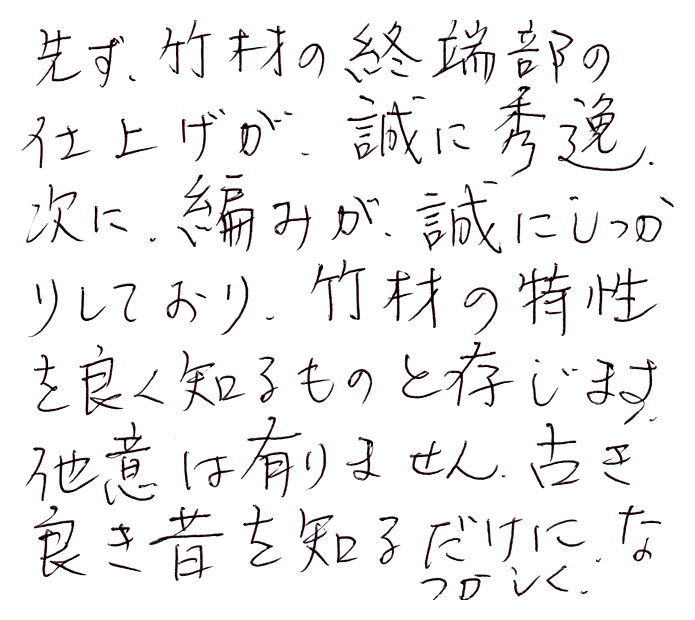 先ず、竹材の終端部の
仕上げが、誠に秀逸、
次に、編みが、誠にしっか
りしており、竹材の特性
を良く知るものと存じます、
他意は有りません、古き
良き昔を知るだけに、な
つかしく、